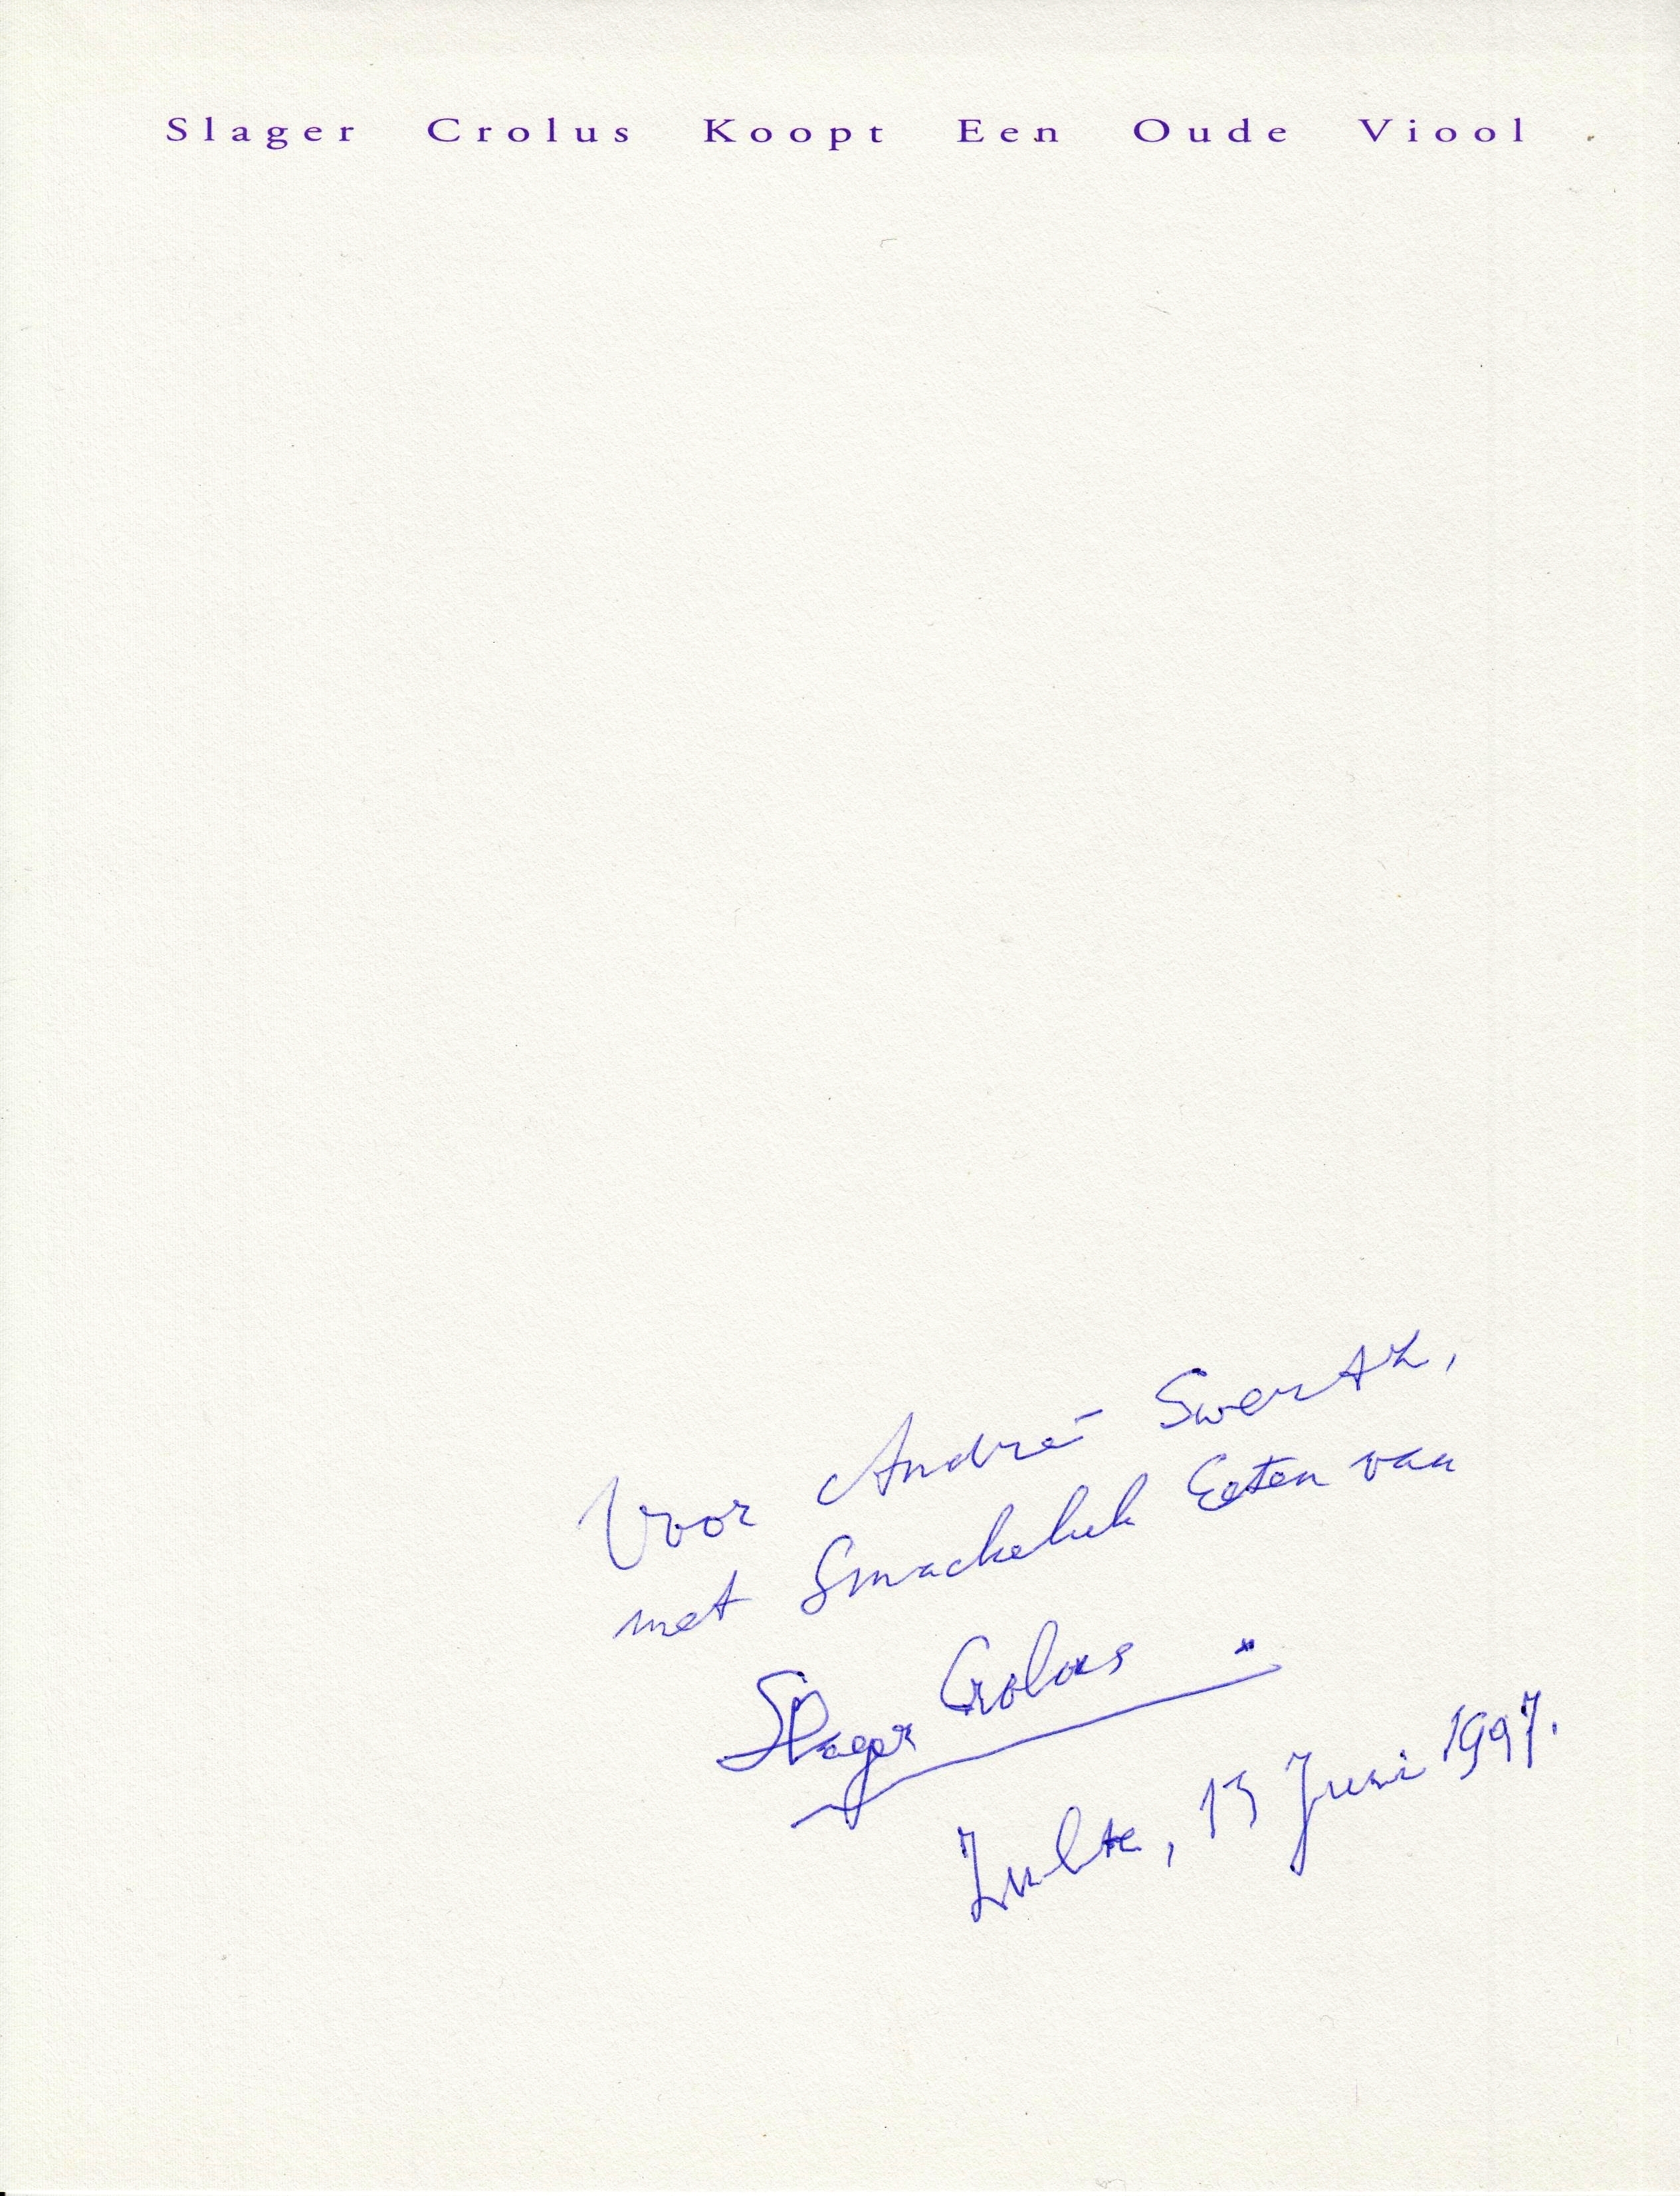 Slager Crolus Koopt Een Oude Viool
Voor André Swertz,
met Smackeluk Eeten van
Slager Crolus
Zulte, 13 Juni 1997.